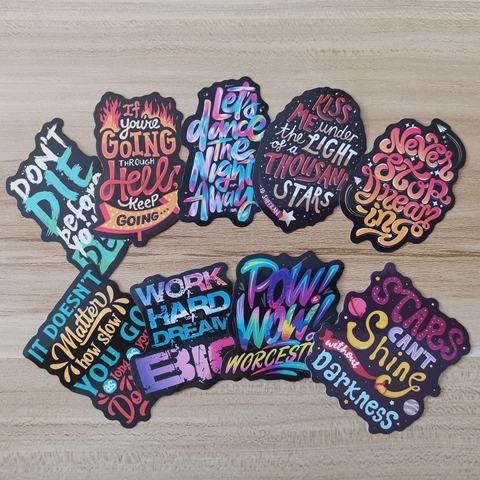 DON'T
DIE
before
YOU
If
you're
GOING
THROUGH
Hell,
KEEP
GOING...
Let's
dance
The
Night
Away
KISS
ME under
the LIGHT
of a
THOUSAND
STARS
Never
Stop
Dream
ing
IT DOESN'T
Matter
how slow
YOU GO
as long as you
DO
WORK
HARD
DREAM
BIG
POW!
WOW!
WORCESTE
STARS
CAN'T
Shine
without
DARKNESS